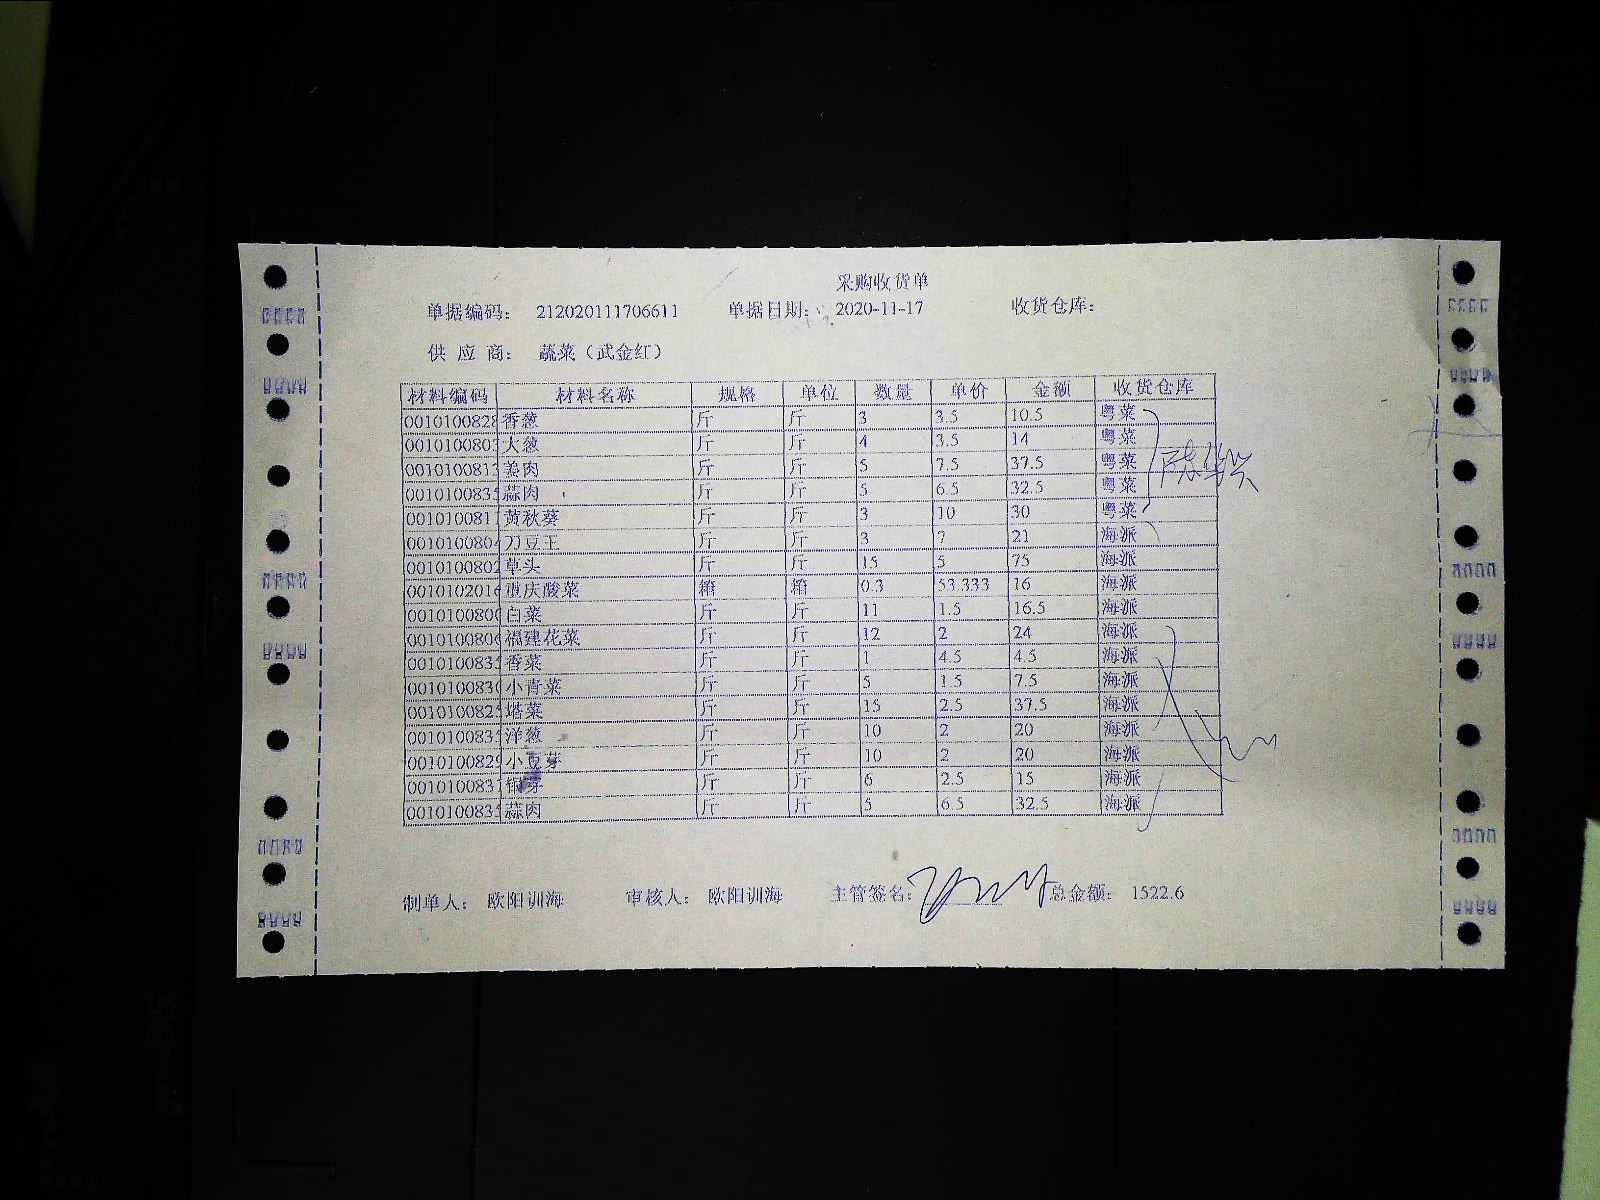 采购收货单
单据编码： 212020111706611 单据日期： 2020-11-17 收货仓库：
供 应 商： 蔬菜（武金红）
材料编码 材料名称 规格 单位 数量 单价 金额 收货仓库
0010100828 香葱 斤 斤 3 3.5 10.5 粤菜
0010100803 大葱 斤 斤 4 3.5 14 粤菜
0010100813 姜肉 斤 斤 5 7.5 37.5 粤菜
0010100835 蒜肉 斤 斤 5 6.5 32.5 粤菜
001010081 黄秋葵 斤 斤 3 10 30 粤菜
001010080 刀豆王 斤 斤 3 7 21 海派
0010100802 草头 斤 斤 15 5 75 海派
001010201 重庆酸菜 箱 箱 0.3 53.333 16 海派
001010080 白菜 斤 斤 11 1.5 16.5 海派
001010080 福建花菜 斤 斤 12 2 24 海派
001010083 香菜 斤 斤 1 4.5 4.5 海派
001010083 小青菜 斤 斤 5 1.5 7.5 海派
001010082 塔菜 斤 斤 15 2.5 37.5 海派
001010083 洋葱 斤 斤 10 2 20 海派
001010082 小豆芽 斤 斤 10 2 20 海派
001010083 银芽 斤 斤 6 2.5 15 海派
001010083 蒜肉 斤 斤 5 6.5 32.5 海派
制单人： 欧阳训海 审核人： 欧阳训海 主管签名： 总金额： 1522.6